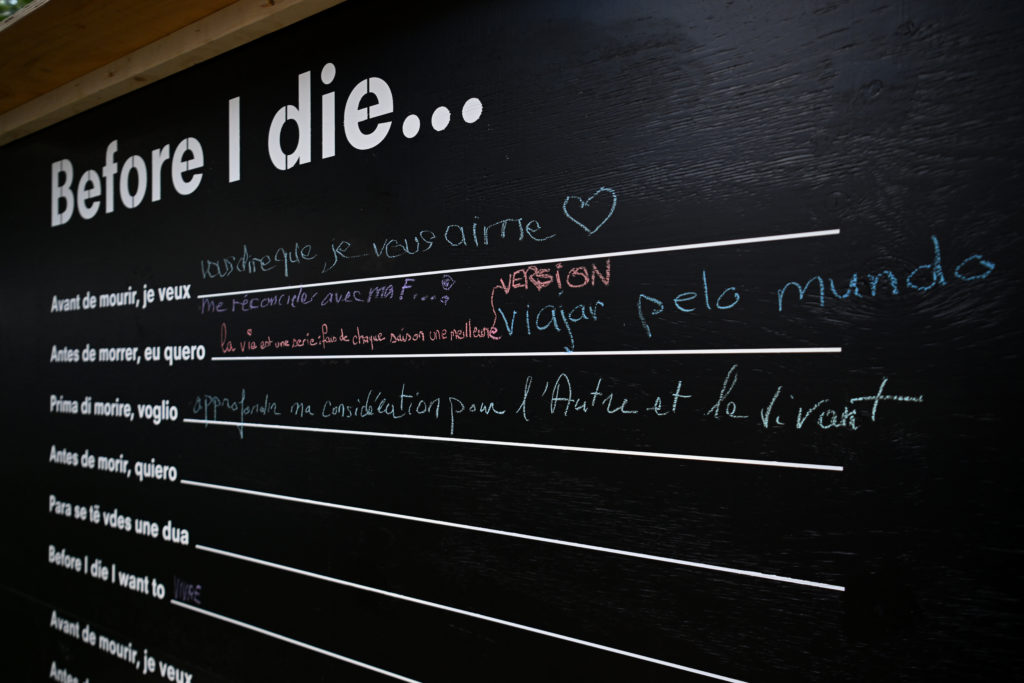 Before I die...
Avant de mourir, je veux vous dire que, je vous aime
me réconcilier avec ma F...
VERSION
Antes de morrer, eu quero la vie est une serie: fais de chaque saison une meilleure viajar pelo mundo
Prima di morire, voglio approfondir ma considération pour l'Autre et le vivant
Antes de morir, quiero
Para se të vdes une dua
Before I die I want to VIVRE
Avant de mourir, je veux
Antes